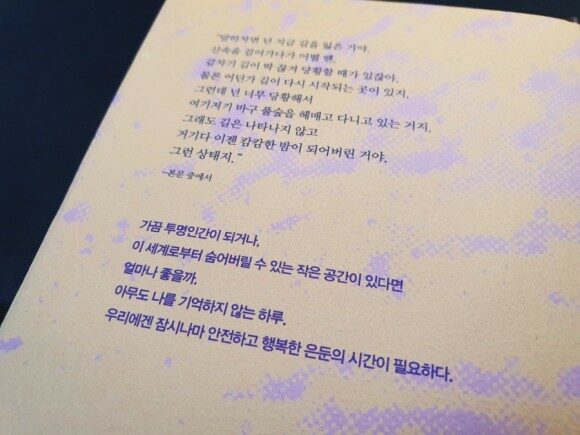 "말하자면 넌 지금 길을 잃은 거야.
산속을 걸어가다가 어떨 땐,
갑자기 길이 딱 끊겨 당황할 때가 있잖아.
물론 어딘가 길이 다시 시작되는 곳이 있지.
그런데 넌 너무 당황해서
여기저기 마구 풀숲을 헤매고 다니고 있는 거지.
그래도 길은 나타나지 않고
거기다 이젠 캄캄한 밤이 되어버린 거야.
그런 상태지."
-본문 중에서
가끔 투명인간이 되거나,
이 세계로부터 숨어버릴 수 있는 작은 공간이 있다면
얼마나 좋을까.
아무도 나를 기억하지 않는 하루.
우리에겐 잠시나마 안전하고 행복한 은둔의 시간이 필요하다.